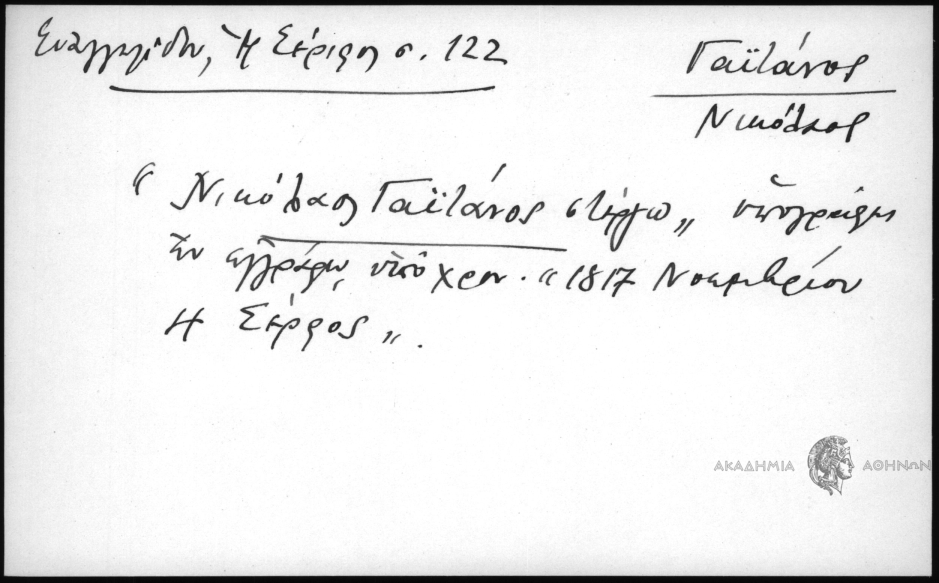 Ευαγγελίδου, Ἡ Σέριφος σ. 122
Γαϊτάνος
Νικόλαος
“ Νικόλαος Γαϊτάνος στέργω „ ὑπογραφὴ
ἐν ἐγγράφῳ, ὑπὸ χρον. “ 1817 Νοεμβρίου
4 Σέρφος „.
ΑΚΑΔΗΜΙΑ ΑΘΗΝΩΝ